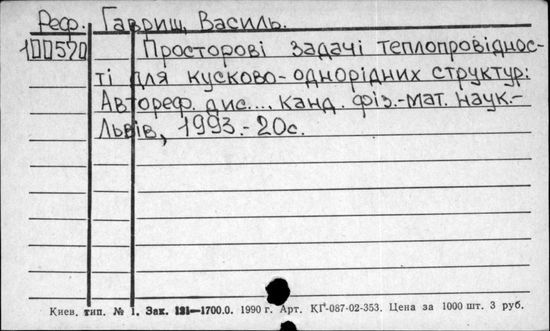 Реф. Гавриш, Василь.
Просторові задачі теплопровіднос-
ті для кусково-однорідних структур:
Автореф. дис.... канд. фіз.-мат. наук.-
Львів, 1993.-20с.
Киев. тип. № 1. Зак. 121—1700.0. 1990 г. Арт. КГ-087-02-353. Цена за 1000 шт. 3 руб.